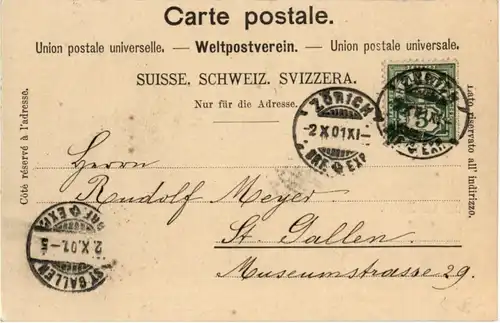 Carte postale.
Union postale universelle. — Weltpostverein. — Unione postale universale.
SUISSE. SCHWEIZ. SVIZZERA.
Nur für die Adresse.
Côté réservé à l'adresse.
Lato riservato all' indirizzo.
ZÜRICH
-2 X 01 XI-
BRF. EXP.
5
ZÜRICH
BRF. EXP.
Herrn
Rudolf Meyer.
St. Gallen.
Museumstrasse 29.
ST. GALLEN
2 X 01.-5
BRF. EXP.